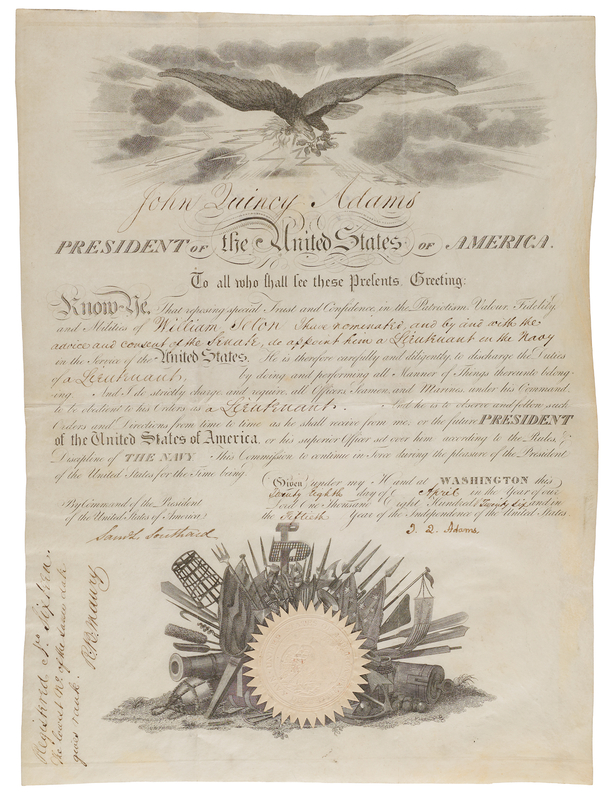 John Quincy Adams
PRESIDENT OF the United States OF AMERICA.
To all who shall see these Presents Greeting:
Know-Ye, That reposing special Trust and Confidence in the Patriotism, Valour, Fidelity,
and Abilities of William Seton I have nominated, and by and with the
advice and consent of the Senate, do appoint him a Lieutenant in the Navy
in the Service of the United States. He is therefore carefully and diligently to discharge the Duties
of a Lieutenant, by doing and performing all Manner of Things thereunto belong-
ing. And I do strictly charge and require all Officers, Seamen and Marines under his Command
to be obedient to his Orders as a Lieutenant. And he is to observe and follow such
Orders and Directions from time to time as he shall receive from me, or the future PRESIDENT
of the United States of America, or his superior Officer set over him according to the Rules, &
Discipline of THE NAVY This Commission to continue in force during the pleasure of the President
of the United States for the Time being.
Given under my Hand at WASHINGTON this
Twenty Eighth day of April in the Year of our
Lord One Thousand Eight Hundred Twenty Six and in
the Fiftieth Year of the Independence of the United States.
By Command of the President
of the United States of America
Saml. Southard
J. Q. Adams
Registered No. Sixteen.
The lowest No. of the same date
gives rank.
R. R. Maury